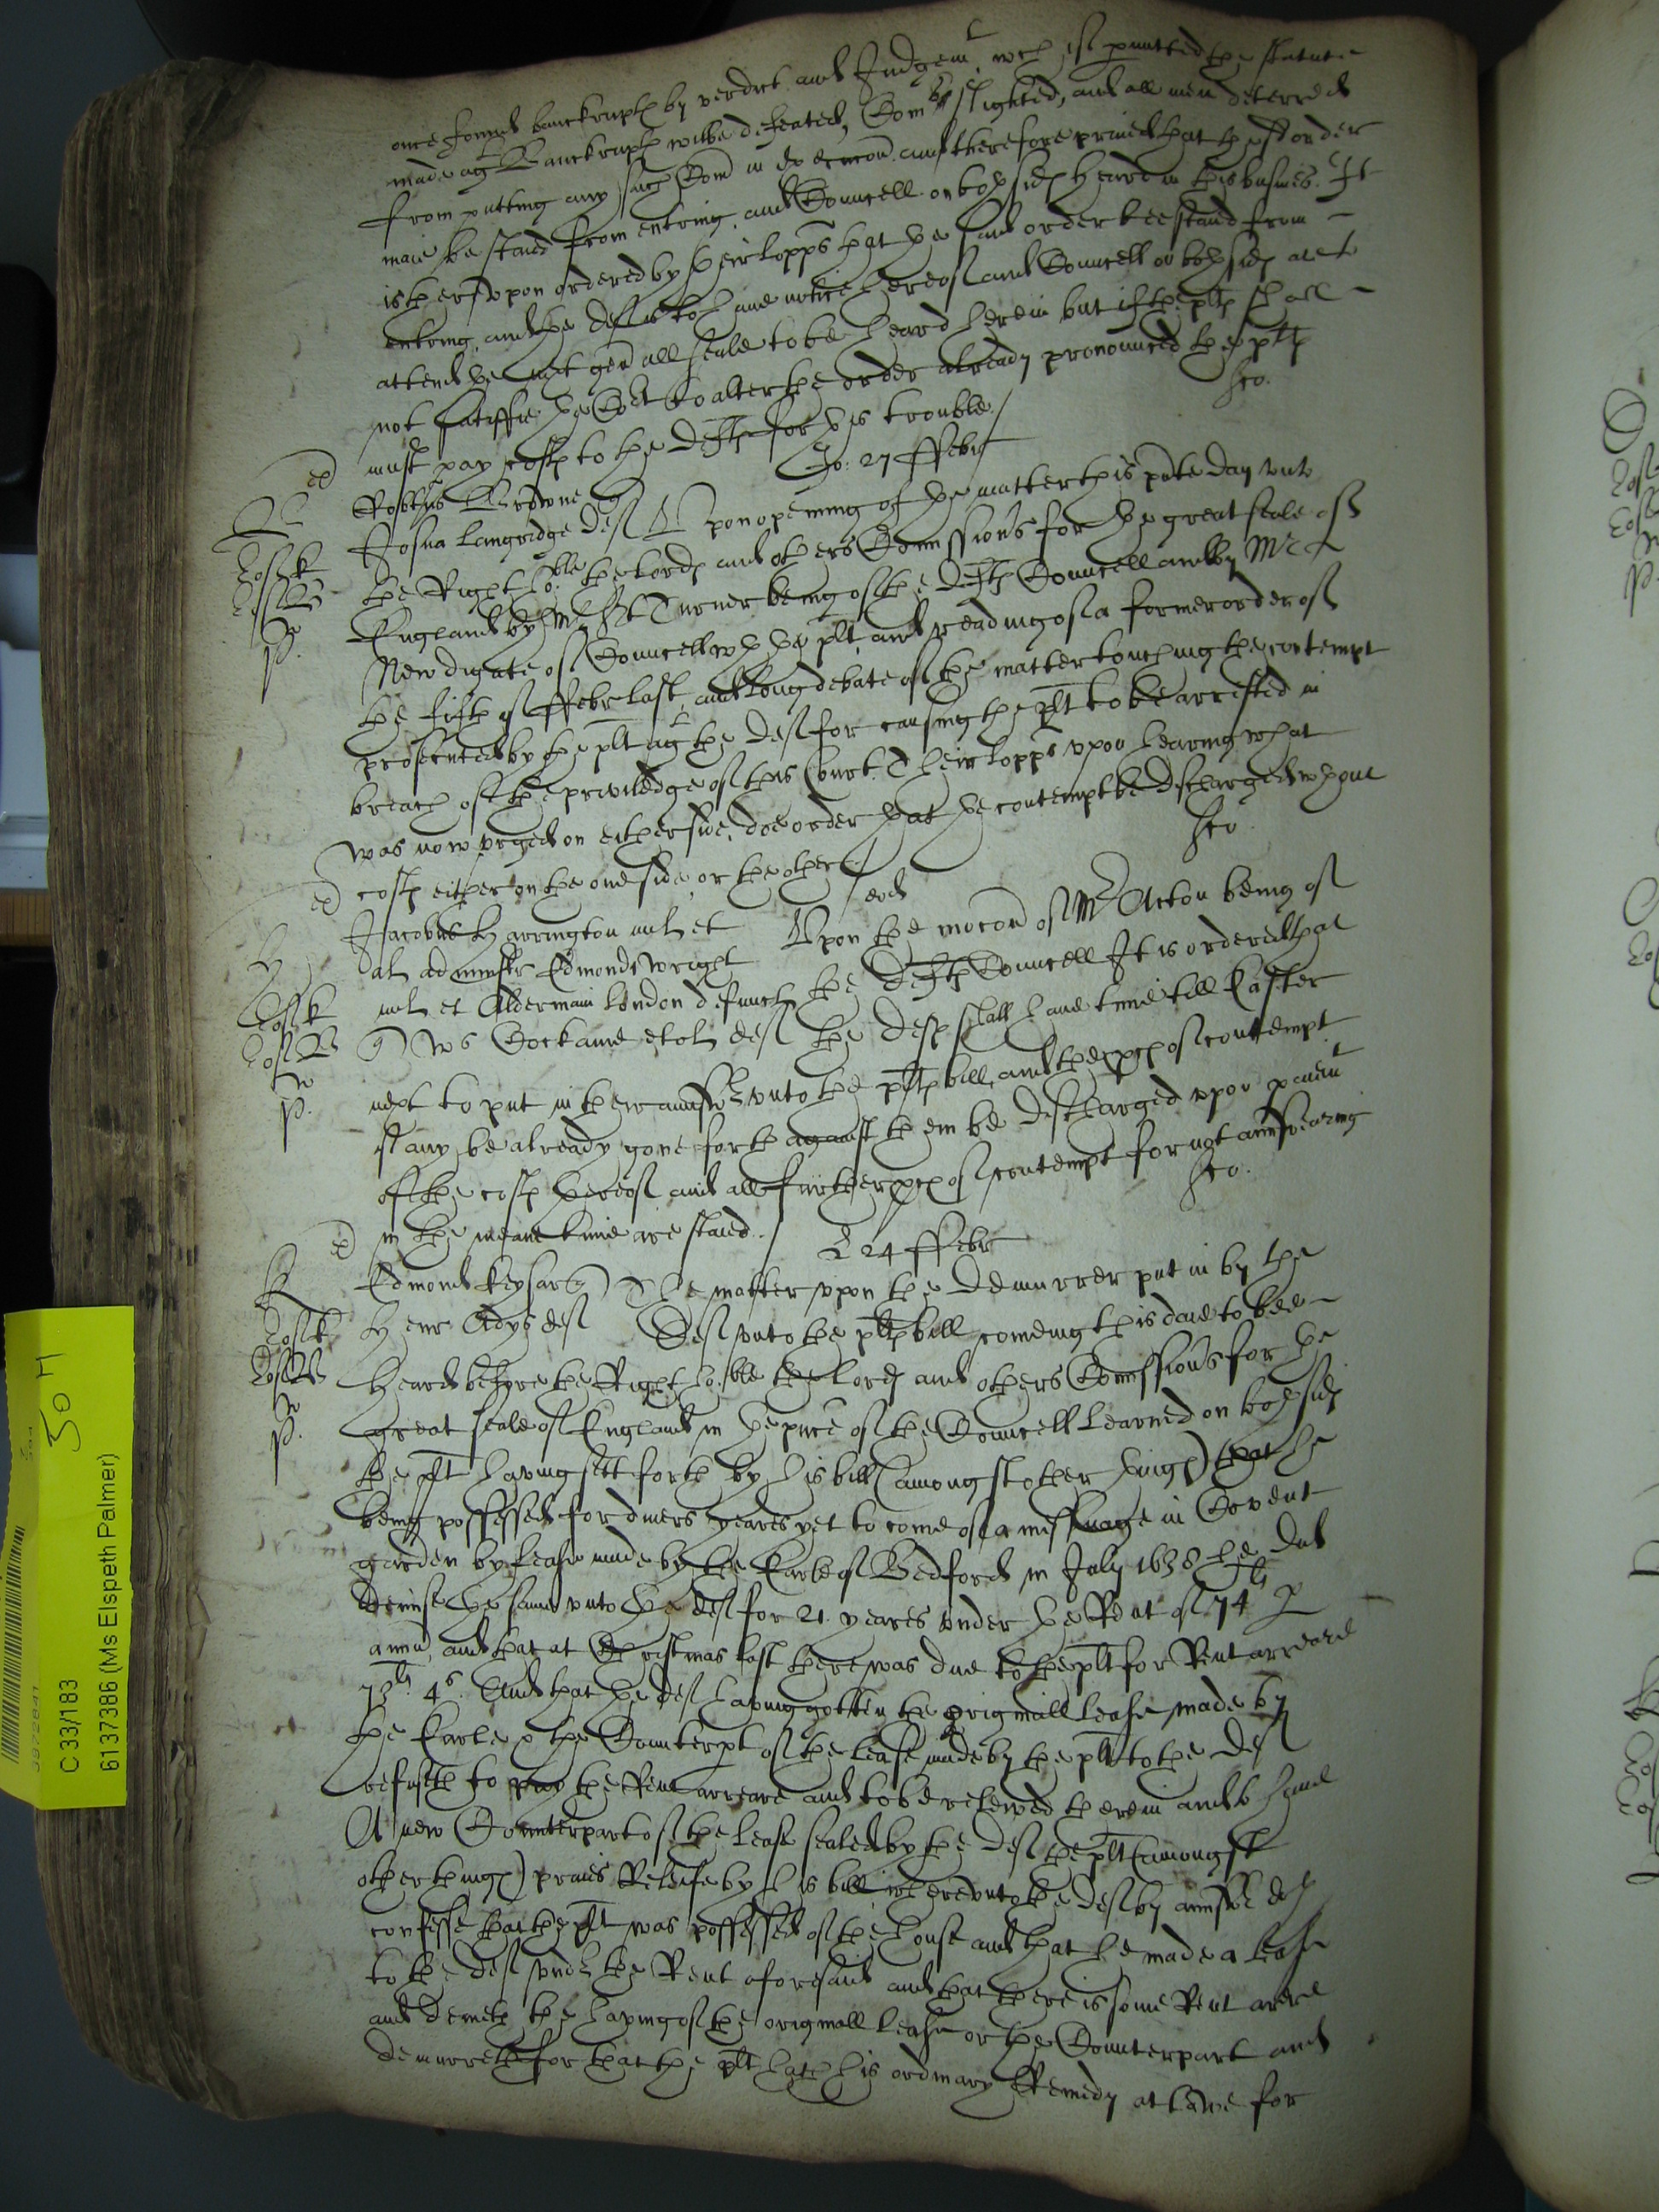 once found banckrupt by verdict and Judgemt, wch if pmitted the statute
made agt Banckrupts wilbe defeated, Comrs slighted, and all men deterred
from putting any such Com in execucon and therefore praied that the sd order
maie be staied from entring, and Councell on both sides heard in this busines. It
is therevpon ordered by their lopps that the said order bee staied from
entring, and the deft is to have notice hereof and Councell on both sides are to
attend the next genall seale to be heard herein but if the plts shall
not satisfie the Cort to alter the order already pronounced the plts
must pay costs to the defts for his trouble
Jo: 27 ffebr
Robtus Browne q
Josua Langridge def Vpon opening of the matter this pnte day vnto
the Right hoble the lords and others Comissioners for the great seale of
England by Mr Turner being of the defts Councell and by Mr
Newdigate of Councell wth the plt, and reading of a former order of
the fifth of ffebr last, and long debate of the matter touching the contempt
prosecuted by the plt agt the def for causing the plt to be arrested in
breach of the priviledge of this Court. Their lopps vpon hearing what
was now vrged on either side, doe order that the contempt be discharged wthout
costs either on the one side or the other
eod
Jacobus Harrington mil et Vpon the mocon of Mr Acton being of
al administr Edmondi Wright the defts Councell It is ordered that
mil et Alderman london defunct the defts shall have time till Easter
q Ws Cockaine et al def
next to put in their answer vnto the plts bill, and the pces of contempt
if any be already gone forth against them be discharged vpon paiemt
of the costs thereof and all further pces of contempt for not answearing
in the meane time are staied.
L 24 ffebr
Edmond Keysar q The matter vpon the Demurrer put in by the
Henr Adys def Def vnto the plts bill comeing this daie to bee
heard before the Right hoble the lords and others Comissioners for the
great seale of England in the pnce of the Councell learned on both sides
the plt having sett forth by his bill (amongst other things) that he
being possessed for divers yeares yet to come of a messuage in Covent
garden by lease made by the Earle of Bedford in July 1638 he did
demise the same vnto the def for 21 yeares vnder the Rent of 74li p
annu, and that at Christmas last there was due to the plt for Rent arreare
73li. 4s. And that the def having gotten the originall lease made by
the Earle & the Counterpt of the lease made by the plt to the def
refuseth to pay the Rent arreare and to be releived therein and to have
A new Counterpart of the lease sealed by the def the plt (amongst
other things) praies Releife by his bill wherevnto the def by answer doth
confesse that the plt was possessed of the house and that he made a lease
to the def vnder the Rent aforesaid and that there is some Rent arere
and denieth the having of the originall lease or the Counterpart and
demurreth for that the plt hath his ordinary Remedy at lawe for
C 33/183
6137386 (Ms Elspeth Palmer)